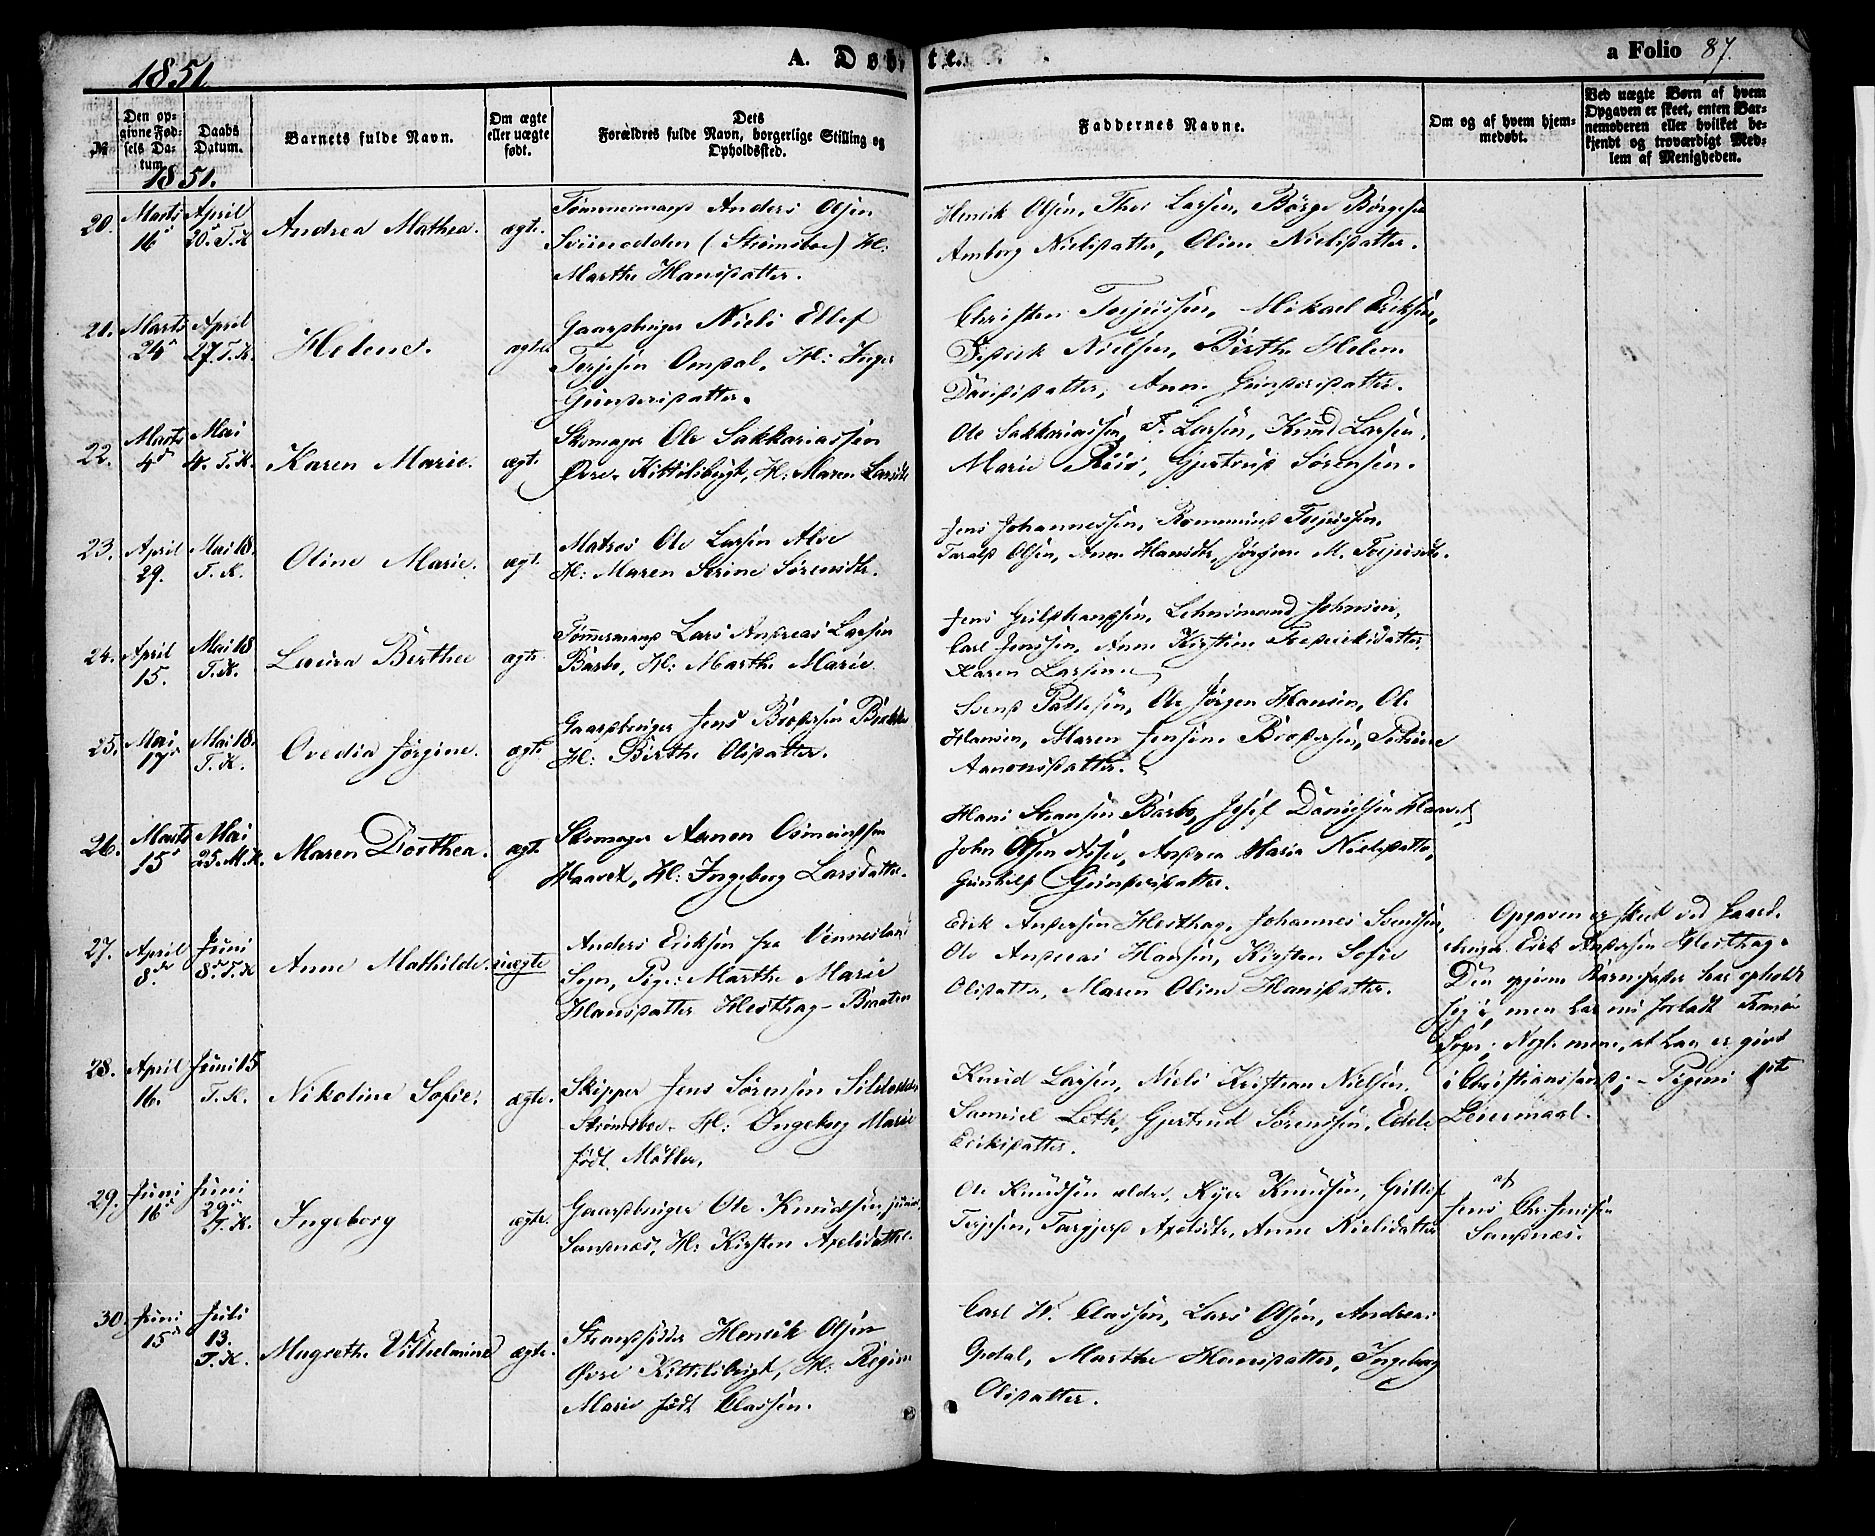 1851.
A. Døbte.
a Folio 87.
№
Den op-
givne Fød-
sels Da-
tum.
Daabs
Datum.
Barnets fulde Navn.
Om ægte
eller uægte
født.
Dets
Forældres fulde Navn, borgerlige Stilling og
Opholdssted.
Faddernes Navne.
Om og af hvem hjem-
medøbt.
Ved uægte Børn af hvem
Opgaven er skeet, enten Bar-
nemoderen eller hvilket be-
kjendt og troværdigt Med-
lem af Menigheden.
1851.
20. Marts April Andrea Mathea. ægte. Tømmermand Anders Olsen
16 20. T. K.
Sviinodden (Strømsboe) H:
Marthe Hansdatter.
Henrik Olsen, Thor Larsen, Børge Børgesen
Amborg Nielsdatter, Oline Nielsdatter.
21. Marts April Helene. ægte Gaardbruger Niels Ellef
24 27. T. K.
Terjesen Omdal, H: Inger
Gundersdatter.
Christen Terjussen, Mikael Eriksen,
Didrick Nielsen, Birthe Helene
Davidsdatter, Anne Gundersdatter.
22. Marts Mai Karen Marie. ægt. Skomager Ole Sakkariassen
4 4. T. K.
Øvre Kittelsbugt, H: Maren Larsdtr
Ole Sakkariassen, T. Larsen, Knud Larsen,
Marie Riis, Gjertrud Sørensen.
23. April Mai 18. Oline Marie. ægt. Matros Ole Larsen Alve
29. T. K.
H: Maren Serine Sørensdtr.
Jens Johannessen, Rommund Terjussen,
Tarald Olsen, Anne Hansdtr, Jørgine M. Terjusdtr.
24. April Mai 18 Laura Berthea ægte Tømmermand Lars Andreas Larsen
15. T. K.
Barbo, H: Marthe Marie
Jens Guldbrandsen, Lehnsmand Johnsen,
Carl Jenssen, Anne Kirstine Fredriksdatter,
Karen Larsen
25. Mai Mai 18. Ovedia Jørgine. ægte Gaardbruger Jens Brodersen
17. T. K.
H: Birthe Olsdatter.
Svend Pallesen, Ole Jørgen Hansen, Ole
Hansen, Maren Jensine Brodersen,
Aanonsdatter.
26. Marts Mai Maren Dorthea. ægt. Skomager Aanon Osmundsen
15 25. M. K.
Haavet, H: Ingeborg Larsdatter.
Hans Hansen Barbo, Josef Danielsen Haavet,
John Olsen, Andrea Maria Nielsdatter,
Gunhild Gundersdatter.
27. April Juni Anne Mathilde. uægte Anders Eriksen fra Vennesland
8. 8. T. K
Sogn, Pige: Marthe Marie
Hansdatter Hesthag-Braaten
Erik Andersen Hesthag, Johannes Svendsen,
Ole Andreas Hansen, Kirsten Sofie
Olsdatter, Maren Oline Hansdatter.
Opgaven er skeet ved Gaard-
bruger Erik Andersen Hesthag.
Den opgivne Barnefader har opholdt
sig i, men har nu forladt Tromø
Sogn; men, at han er givt
i Christianssand; - Pigens 1ste
Leiermaal.
28. April Juni 15 Nikoline Sofie. ægte. Skipper Jens Sørensen Sildodden
16. T. K.
Strømsboe, H: Ingeborg Marie
født Møller.
Knud Larsen, Niels Kristian Nielsen,
Samuel Leth, Gjertrud Sørensen, Edele
Eriksdatter.
29. Juni Juni Ingeborg ægte. Gaardbruger Ole Knudsen junior
16 29 T. K.
Sandnæs, H: Kirsten Axelsdatter.
Ole Knudsen ældre, Kyer Knudsen, Gullik
Terjesen, Torgjerd Axelsdtr, Anne Nielsdatter
af
Jens Chr. Jenssen
Sandnæs.
30. Juni Juli Magrethe Vilhelmine ægte. Strandsidder Henrik Olsen
15 13. T. K.
Øvre Kittelsbugt, H: Regine
Marie født Classen.
Carl W. Classen, Lars Olsen, Andreas
Opdal, Marthe Hansdatter, Ingeborg
Olsdatter.